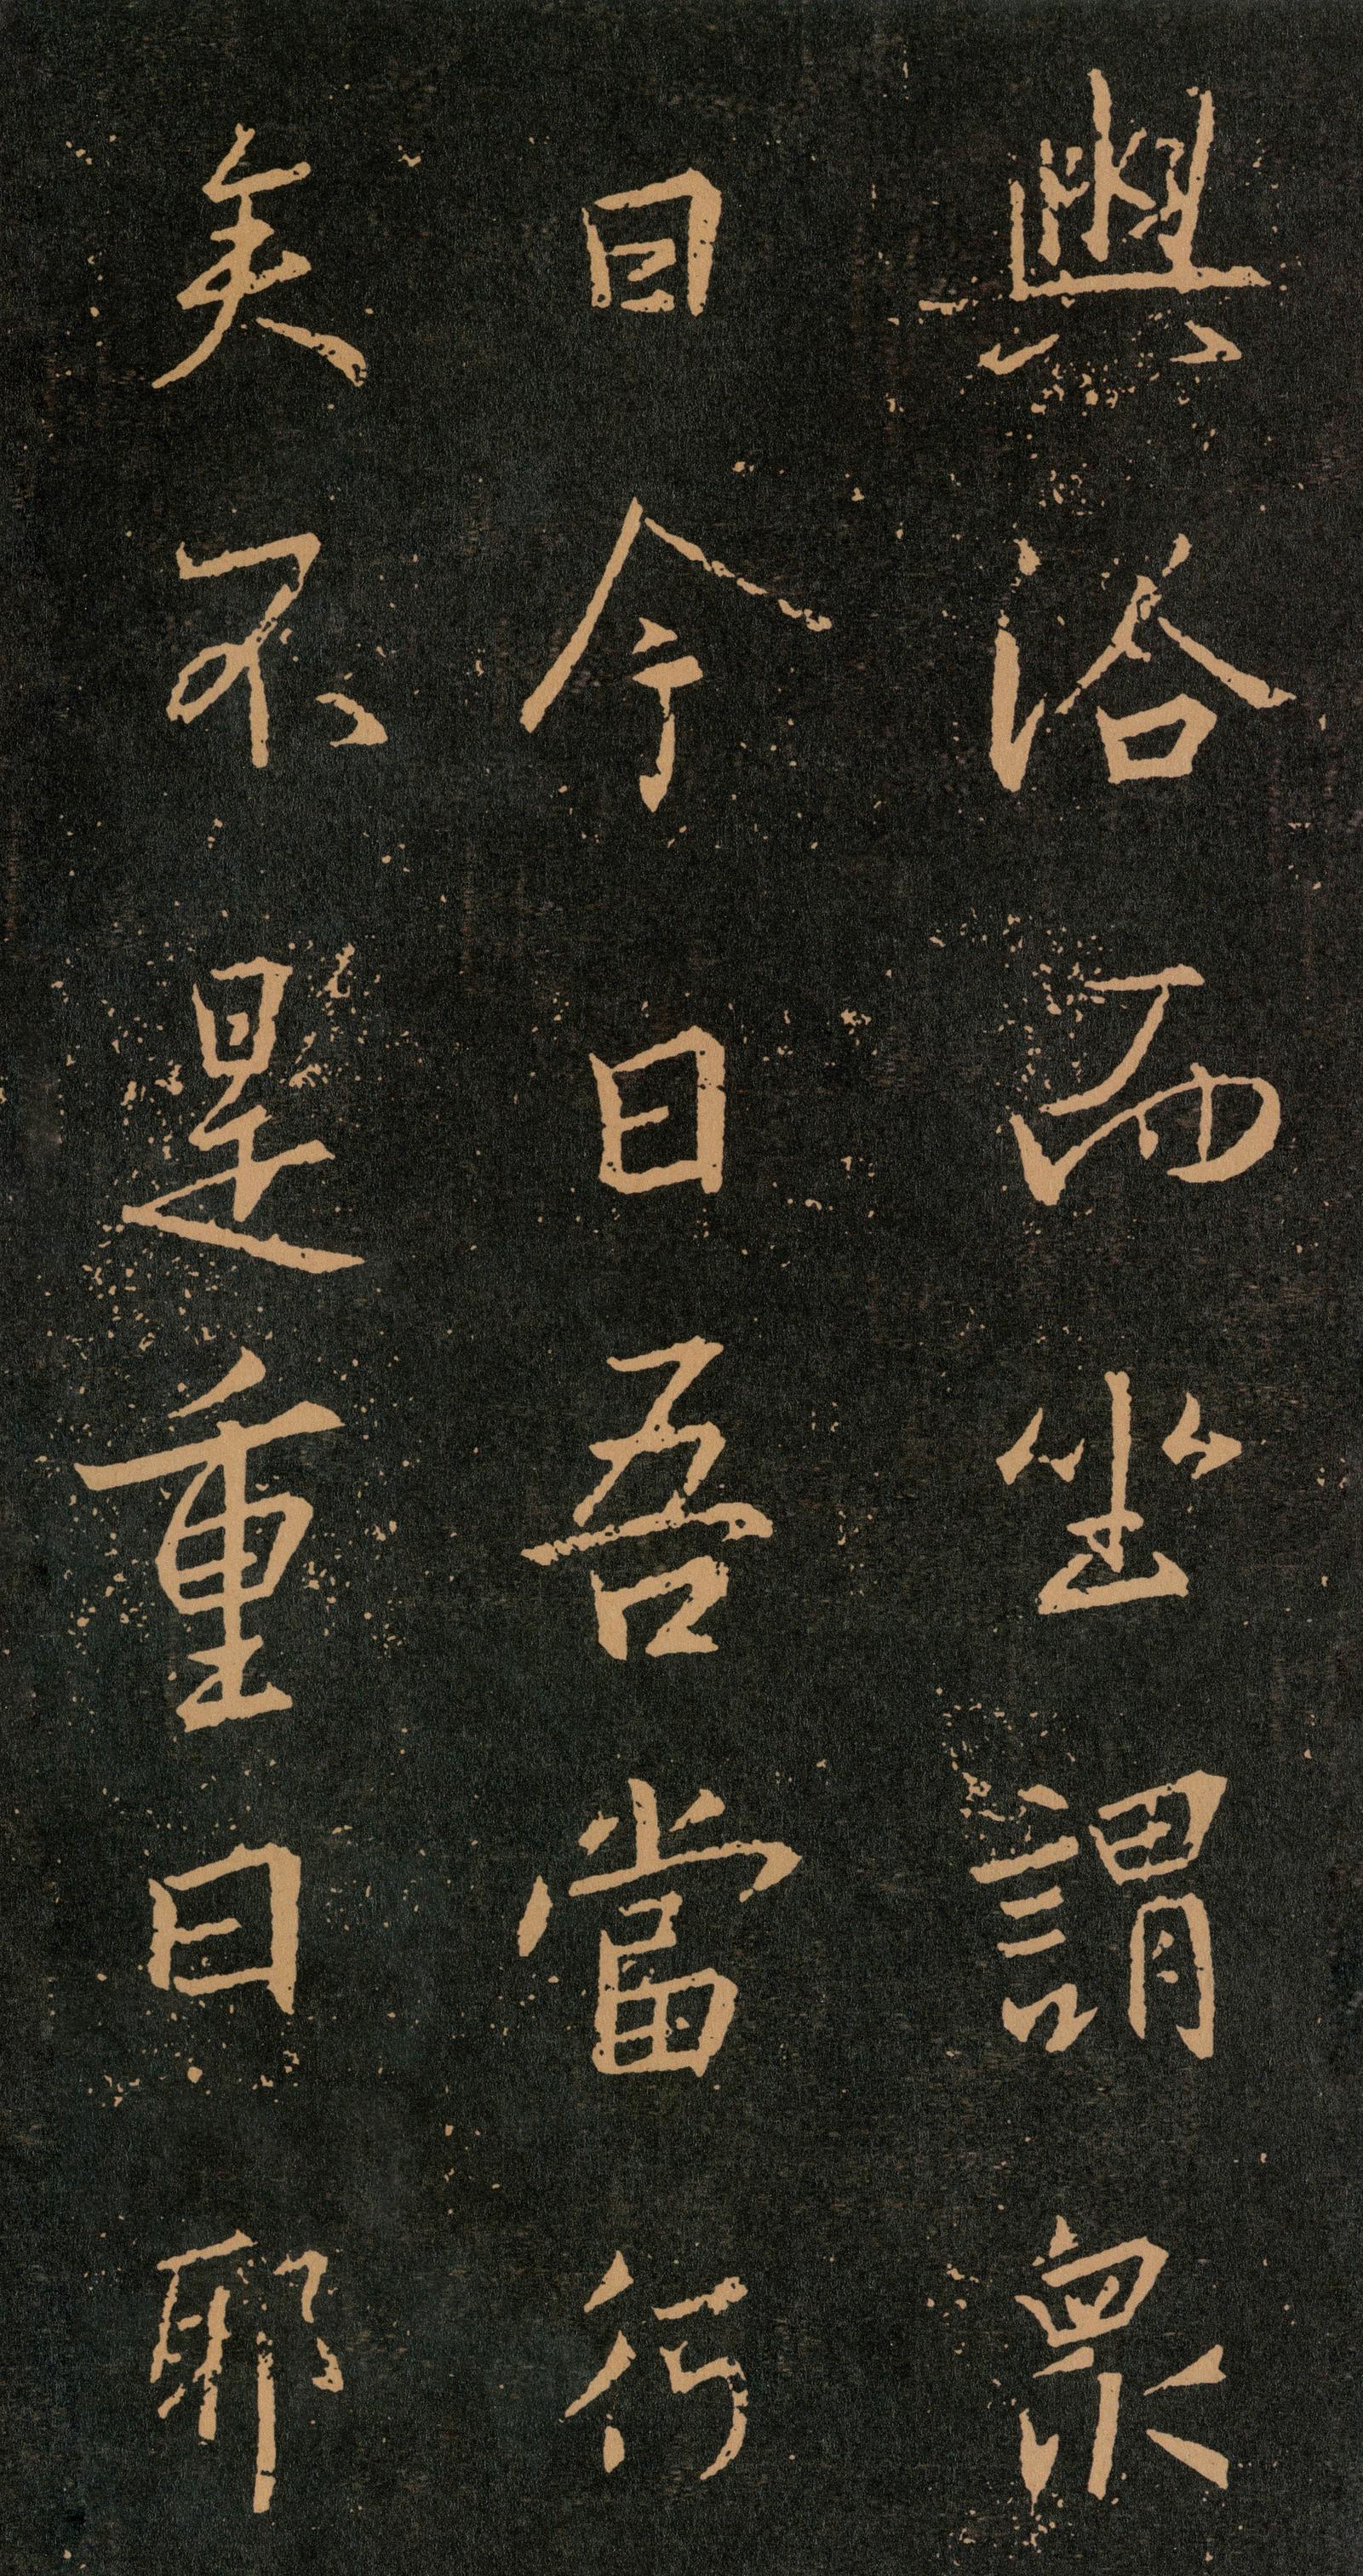 興浴而坐謂衆
曰今日吾當行
矣不是重日耶